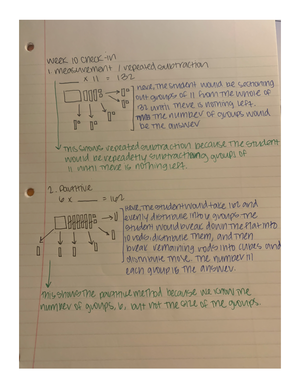 Week 10 Check-in
1. measurement / repeated subtraction
___ x 11 = 132
Here, the student would be sectioning
out groups of 11 from the whole of
132 until there is nothing left.
The number of groups would
be the answer
This shows repeated subtraction because the student
would be repeatedly subtracting groups of
11 until there is nothing left.
2. Partitive
6 x ___ = 162
Here, the student would take 162 and
evenly distribute into 6 groups. The
student would break down the flat into
10 rods, distribute them, and then
break remaining rods into cubes and
distribute more. The number in
each group is the answer.
This shows the partitive method because we know the
number of groups, 6, but not the size of the groups.